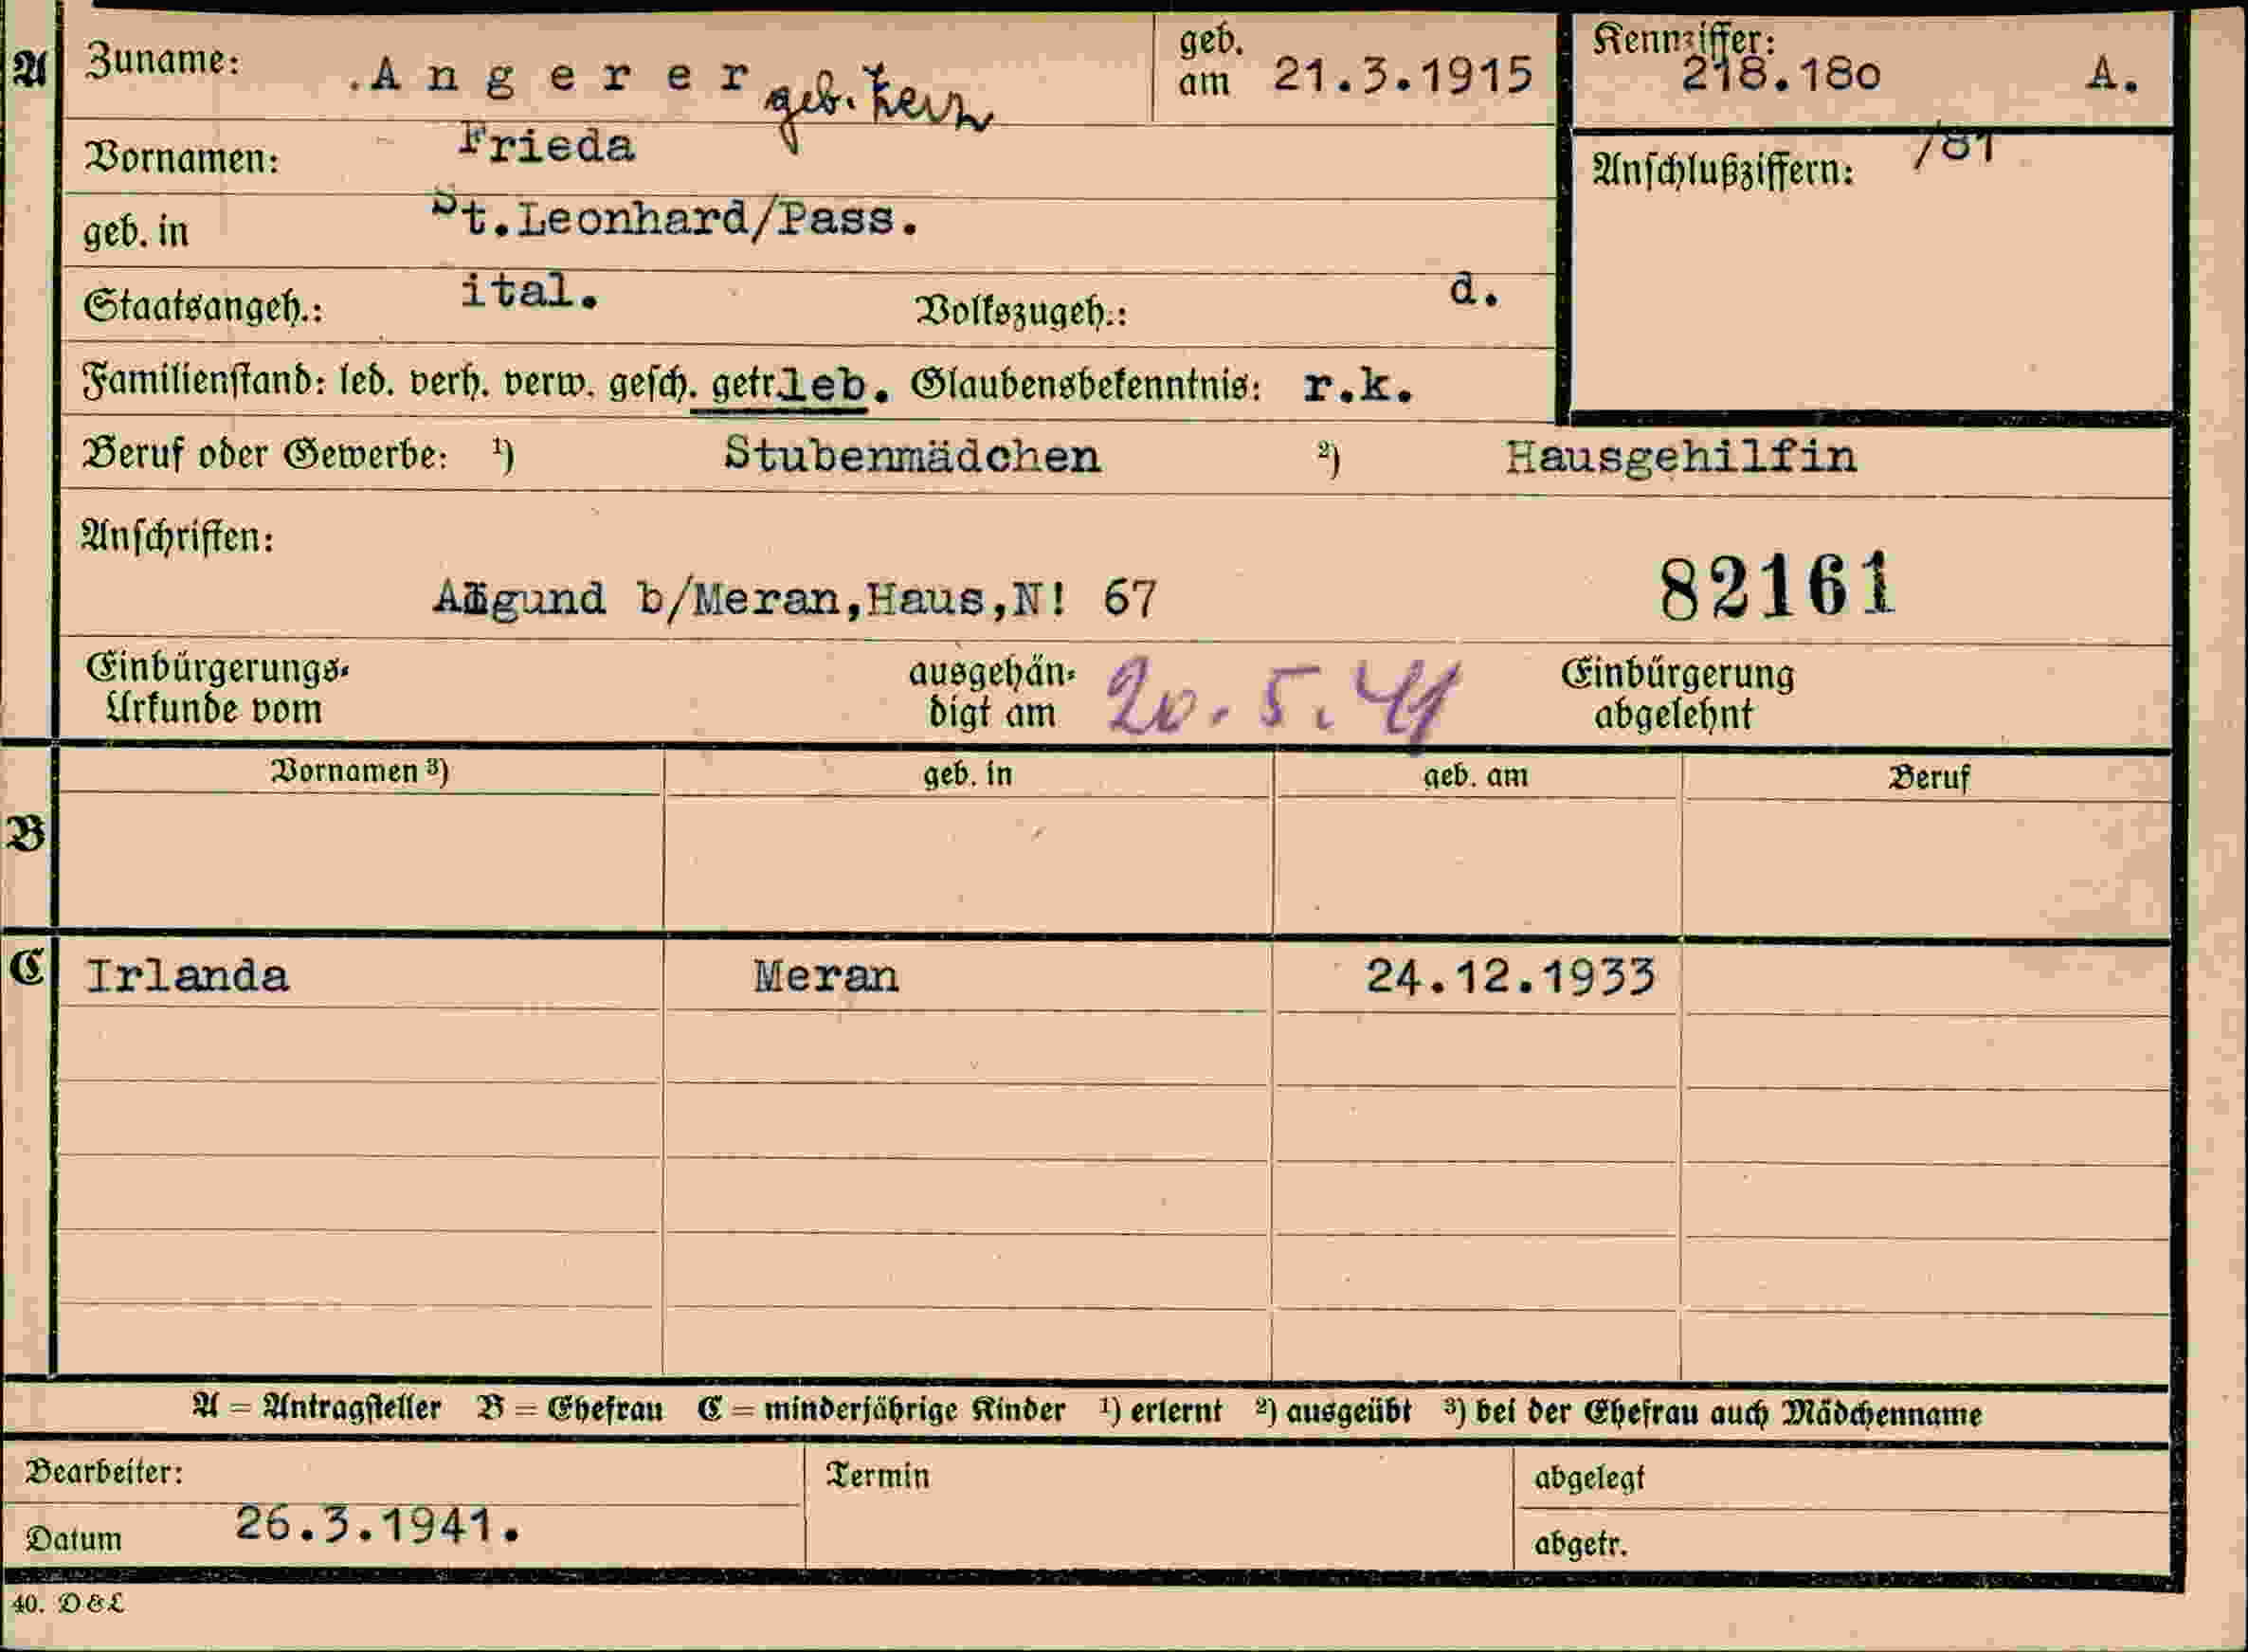 A Zuname: .Angerer geb. geb. am 21.3.1915 Kennziffer: 218.180 A.
Vornamen: Frieda Anschlußziffern: /81
geb. in St.Leonhard/Pass.
Staatsangeh.: ital. Volkszugeh.: d.
Familienstand: led. verh. verw. gesch. getr. leb. Glaubensbekenntnis: r.k.
Beruf oder Gewerbe: ¹) Stubenmädchen ²) Hausgehilfin
Anschriften:
b/Meran,Haus,N! 67 82161
Einbürgerungs- ausgehän- Einbürgerung
Urkunde vom digt am 20.5.41 abgelehnt
Vornamen ³) geb. in geb. am Beruf
B
C Irlanda Meran 24.12.1933
A = Antragsteller B = Ehefrau C = minderjährige Kinder ¹) erlernt ²) ausgeübt ³) bei der Ehefrau auch Mädchenname
Bearbeiter: Termin abgelegt
Datum 26.3.1941. abgetr.
40. D & L